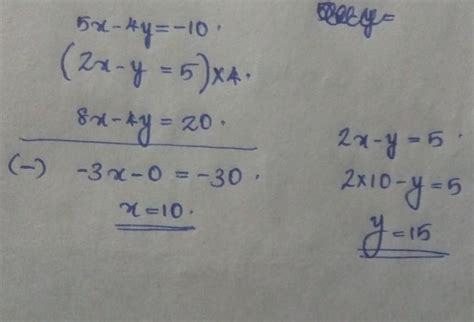 5x-4y=-10.
(2x-y=5)×4.
8x-4y=20.
(-) -3x-0=-30.
x=10.
y=
2x-y=5.
2×10-y=5
y=15